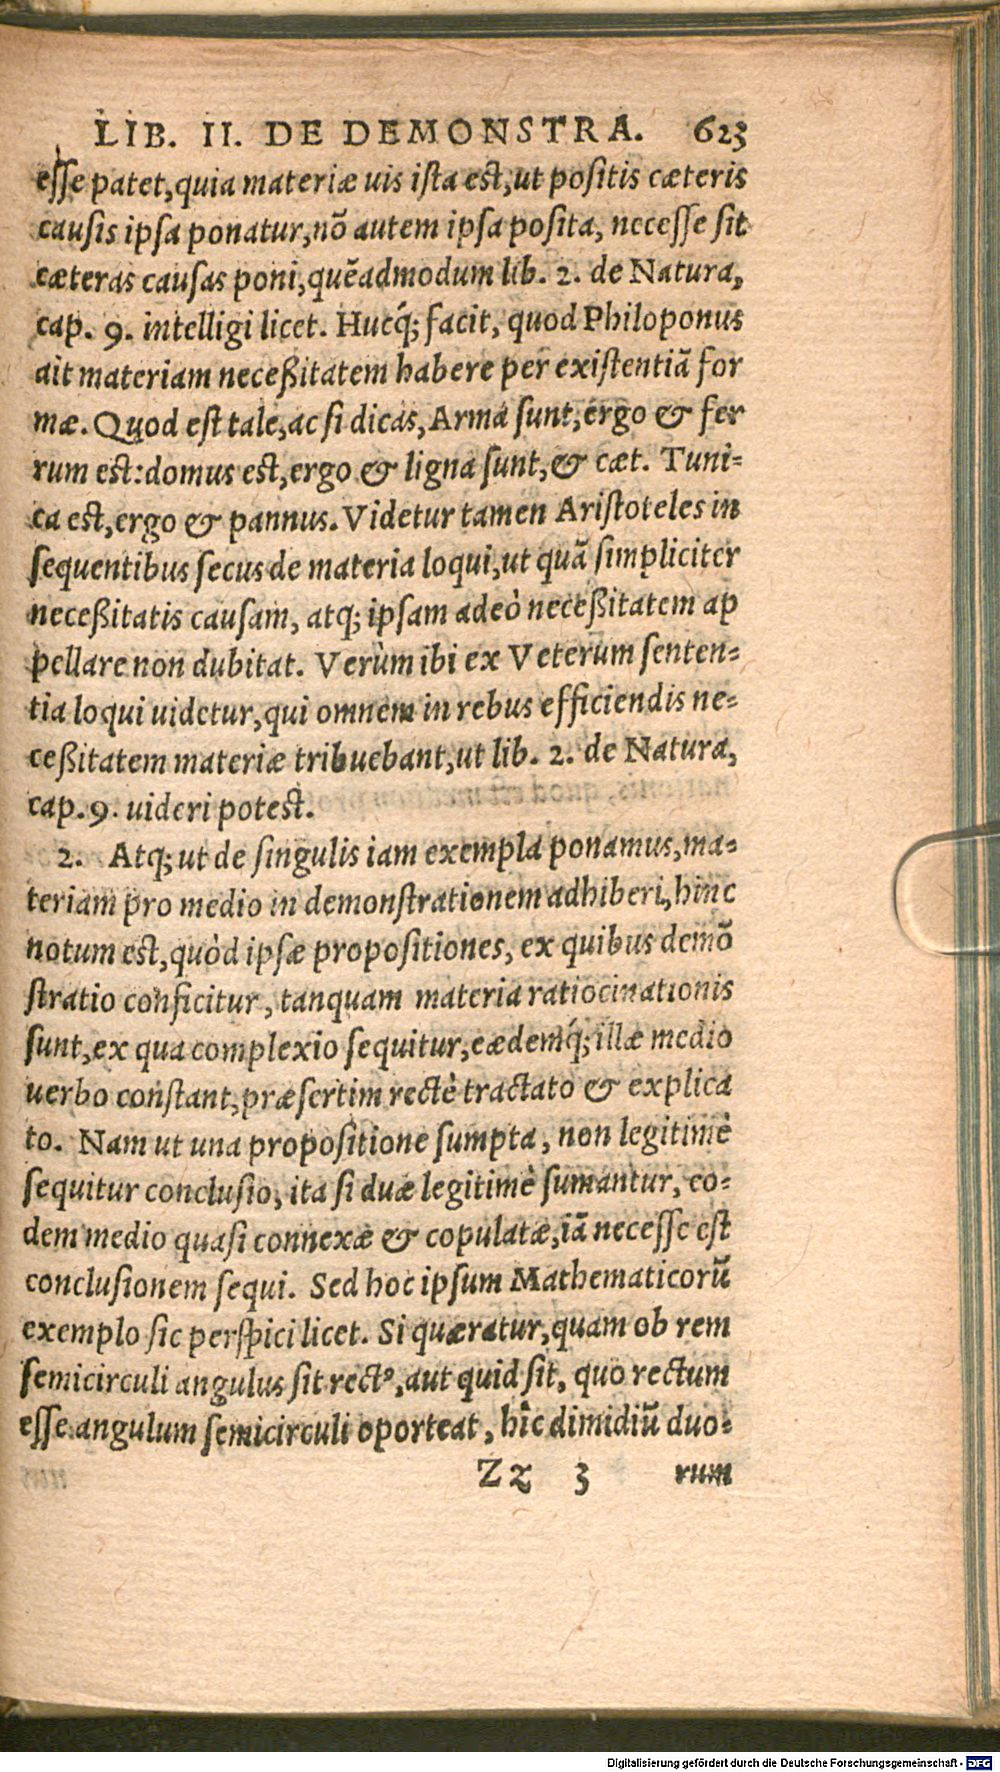 LIB. II. DE DEMONSTRA. 623
esse patet, quia materiæ uis ista est, ut positis cæteris
causis ipsa ponatur, nõ autem ipsa posita, necesse sit
cæteras causas poni, quẽadmodum lib. 2. de Natura,
cap. 9. intelligi licet. Hucq́; facit, quod Philoponus
ait materiam neceßitatem habere per existentiã for
mæ. Quod est tale, ac si dicas, Arma sunt, ergo & fer
rum est: domus est, ergo & ligna sunt, & cæt. Tuni-
ca est, ergo & pannus. Videtur tamen Aristoteles in
sequentibus secus de materia loqui, ut quã simpliciter
neceßitatis causam, atq; ipsam adeò neceßitatem ap
pellare non dubitat. Verùm ibi ex Veterum senten-
tia loqui uidetur, qui omnem in rebus efficiendis ne-
ceßitatem materiæ tribuebant, ut lib. 2. de Natura,
cap. 9. uideri potest.
2. Atq; ut de singulis iam exempla ponamus, ma-
teriam pro medio in demonstrationem adhiberi, hinc
notum est, quòd ipsæ propositiones, ex quibus demõ
stratio conficitur, tanquam materia ratiocinationis
sunt, ex qua complexio sequitur, eædemq́; illæ medio
uerbo constant, præsertim rectè tractato & explica
to. Nam ut una propositione sumpta, non legitimè
sequitur conclusio, ita si duæ legitimè sumantur, eo-
dem medio quasi connexæ & copulatæ, iã necesse est
conclusionem sequi. Sed hoc ipsum Mathematicorũ
exemplo sic perspici licet. Si quæratur, quam ob rem
semicirculi angulus sit rectꝰ, aut quid sit, quo rectum
esse angulum semicirculi oporteat, hîc dimidiũ duo-
Zz 3 rum
Digitalisierung gefördert durch die Deutsche Forschungsgemeinschaft - DFG